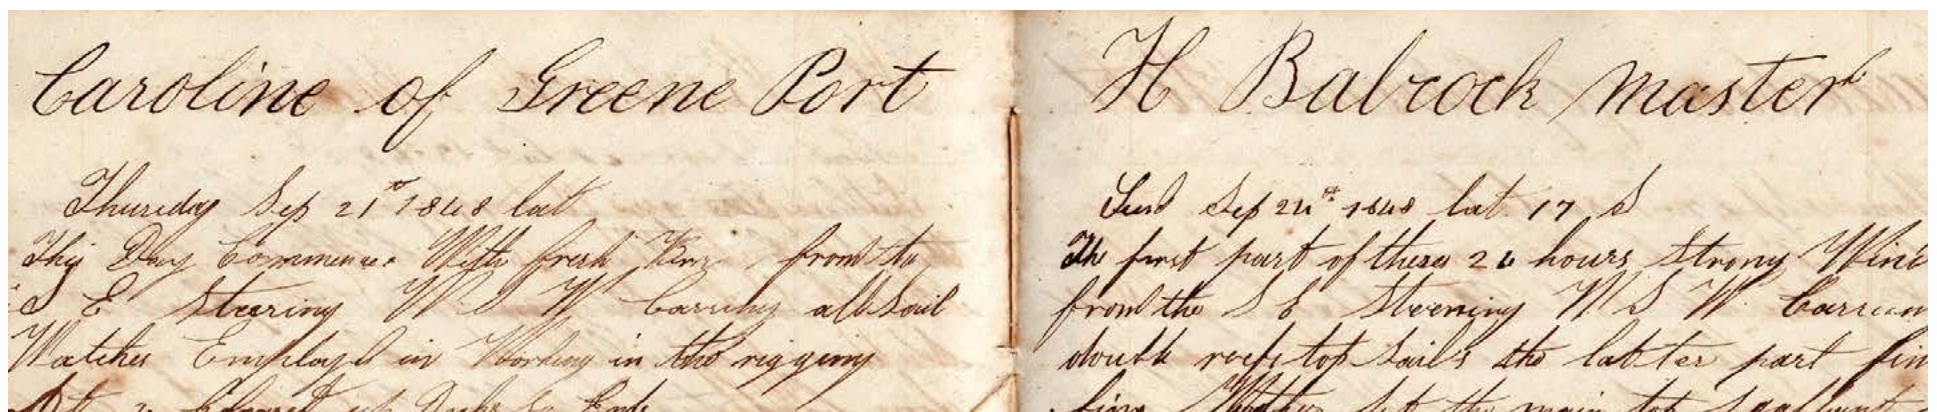 Caroline of Greene Port
Thursday Sep 21st 1848 lat
This Day Commences With fresh from the
S E Steering W S W Carring all Sail
Watches Employd in Working in the rigging
up Decks So Ends
H Babcock Master
Sund Sep 24th 1848 lat 17 S
The first part of these 24 hours Strong Wind
from the S E Steering W S W Carren
double reefs top Sails the latter part fin
fine Set the main top gallant